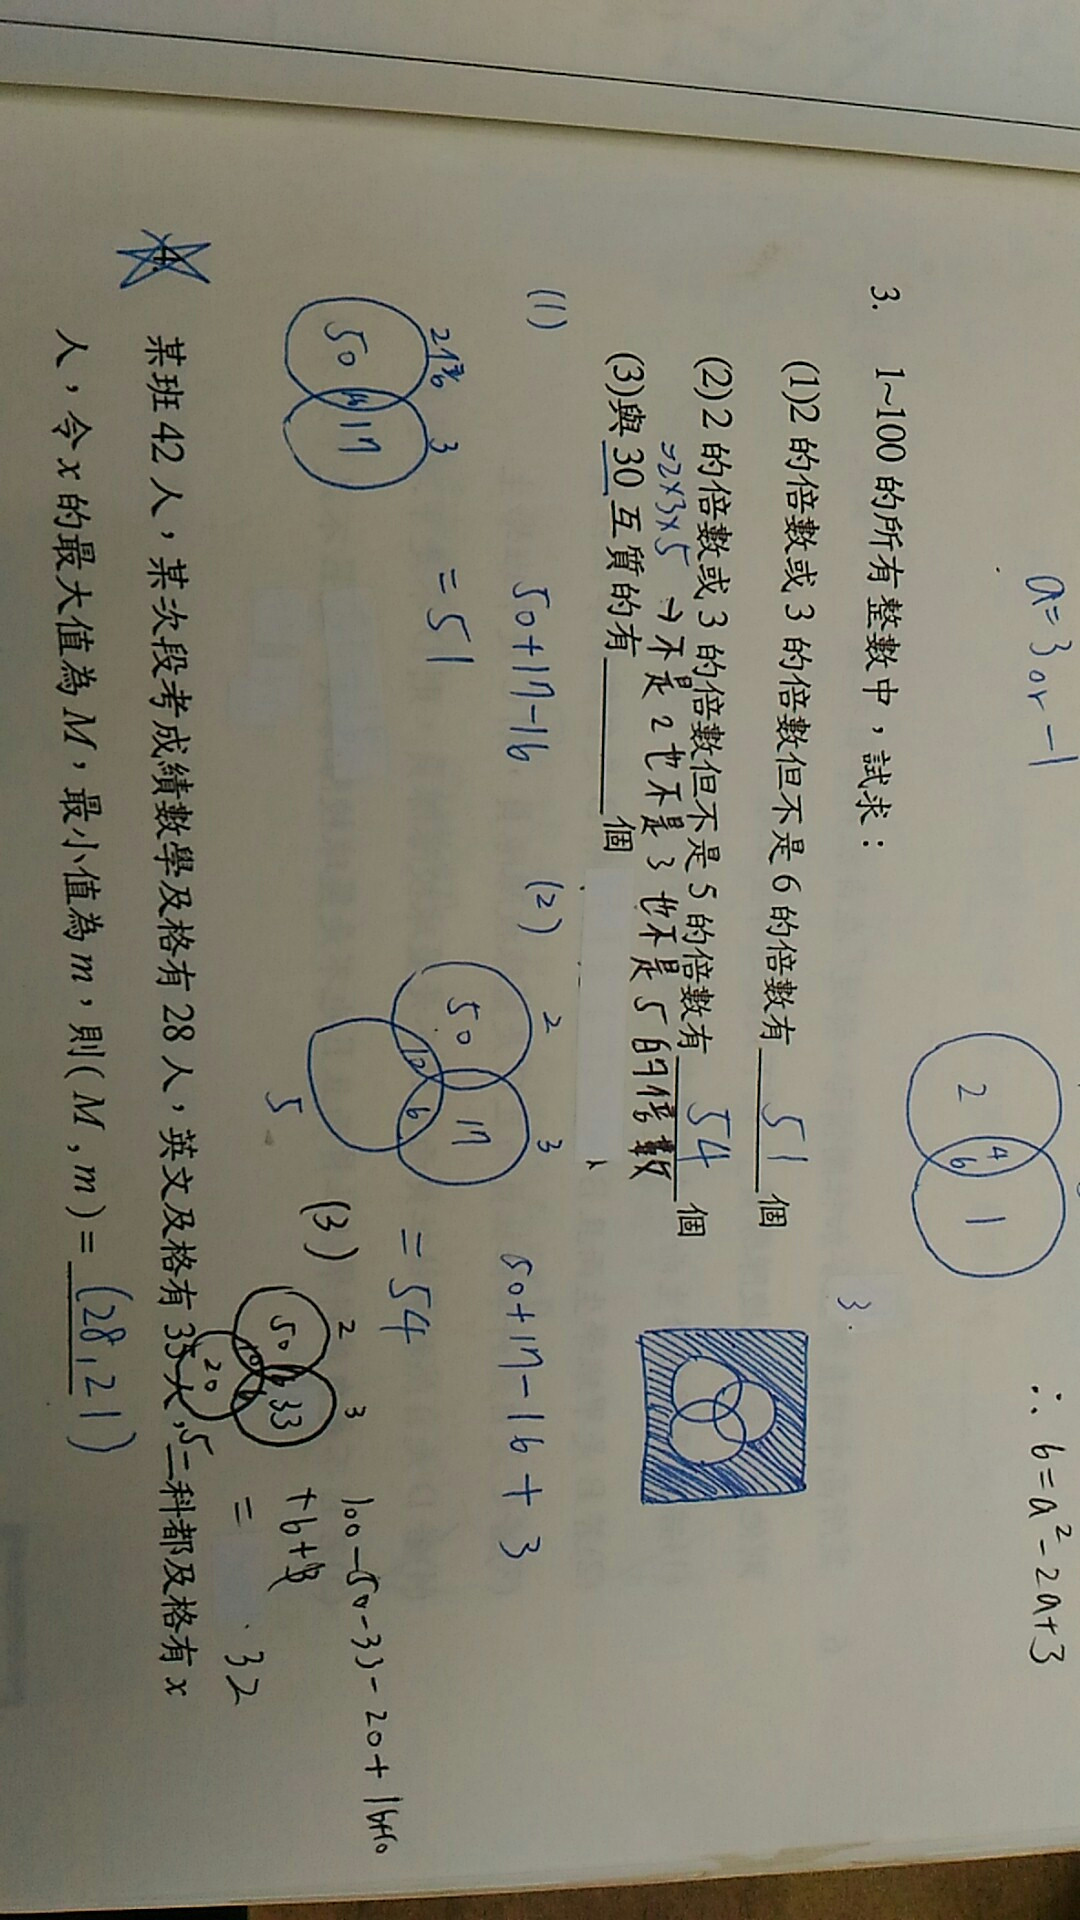 a=3 or -1
∴ b=a²-2a+3
2
4
6
1
3. 1~100的所有整數中，試求：
3.
(1)2的倍數或3的倍數但不是6的倍數有 51 個
(2)2的倍數或3的倍數但不是5的倍數有 54 個
=2×3×5 →不是2也不是3也不是5的倍數
(3)與30互質的有____個
(1)
50+17-16
=51
3
50
17
(2)
2
3
50
17
10
6
5
50+17-16+3
=54
(3)
2
3
50
33
20
5
100-50-33-20+16+10
=
32
4. 某班42人，某次段考成績數學及格有28人，英文及格有35人，二科都及格有x
人，令x的最大值為M，最小值為m，則(M,m)= (28,21)